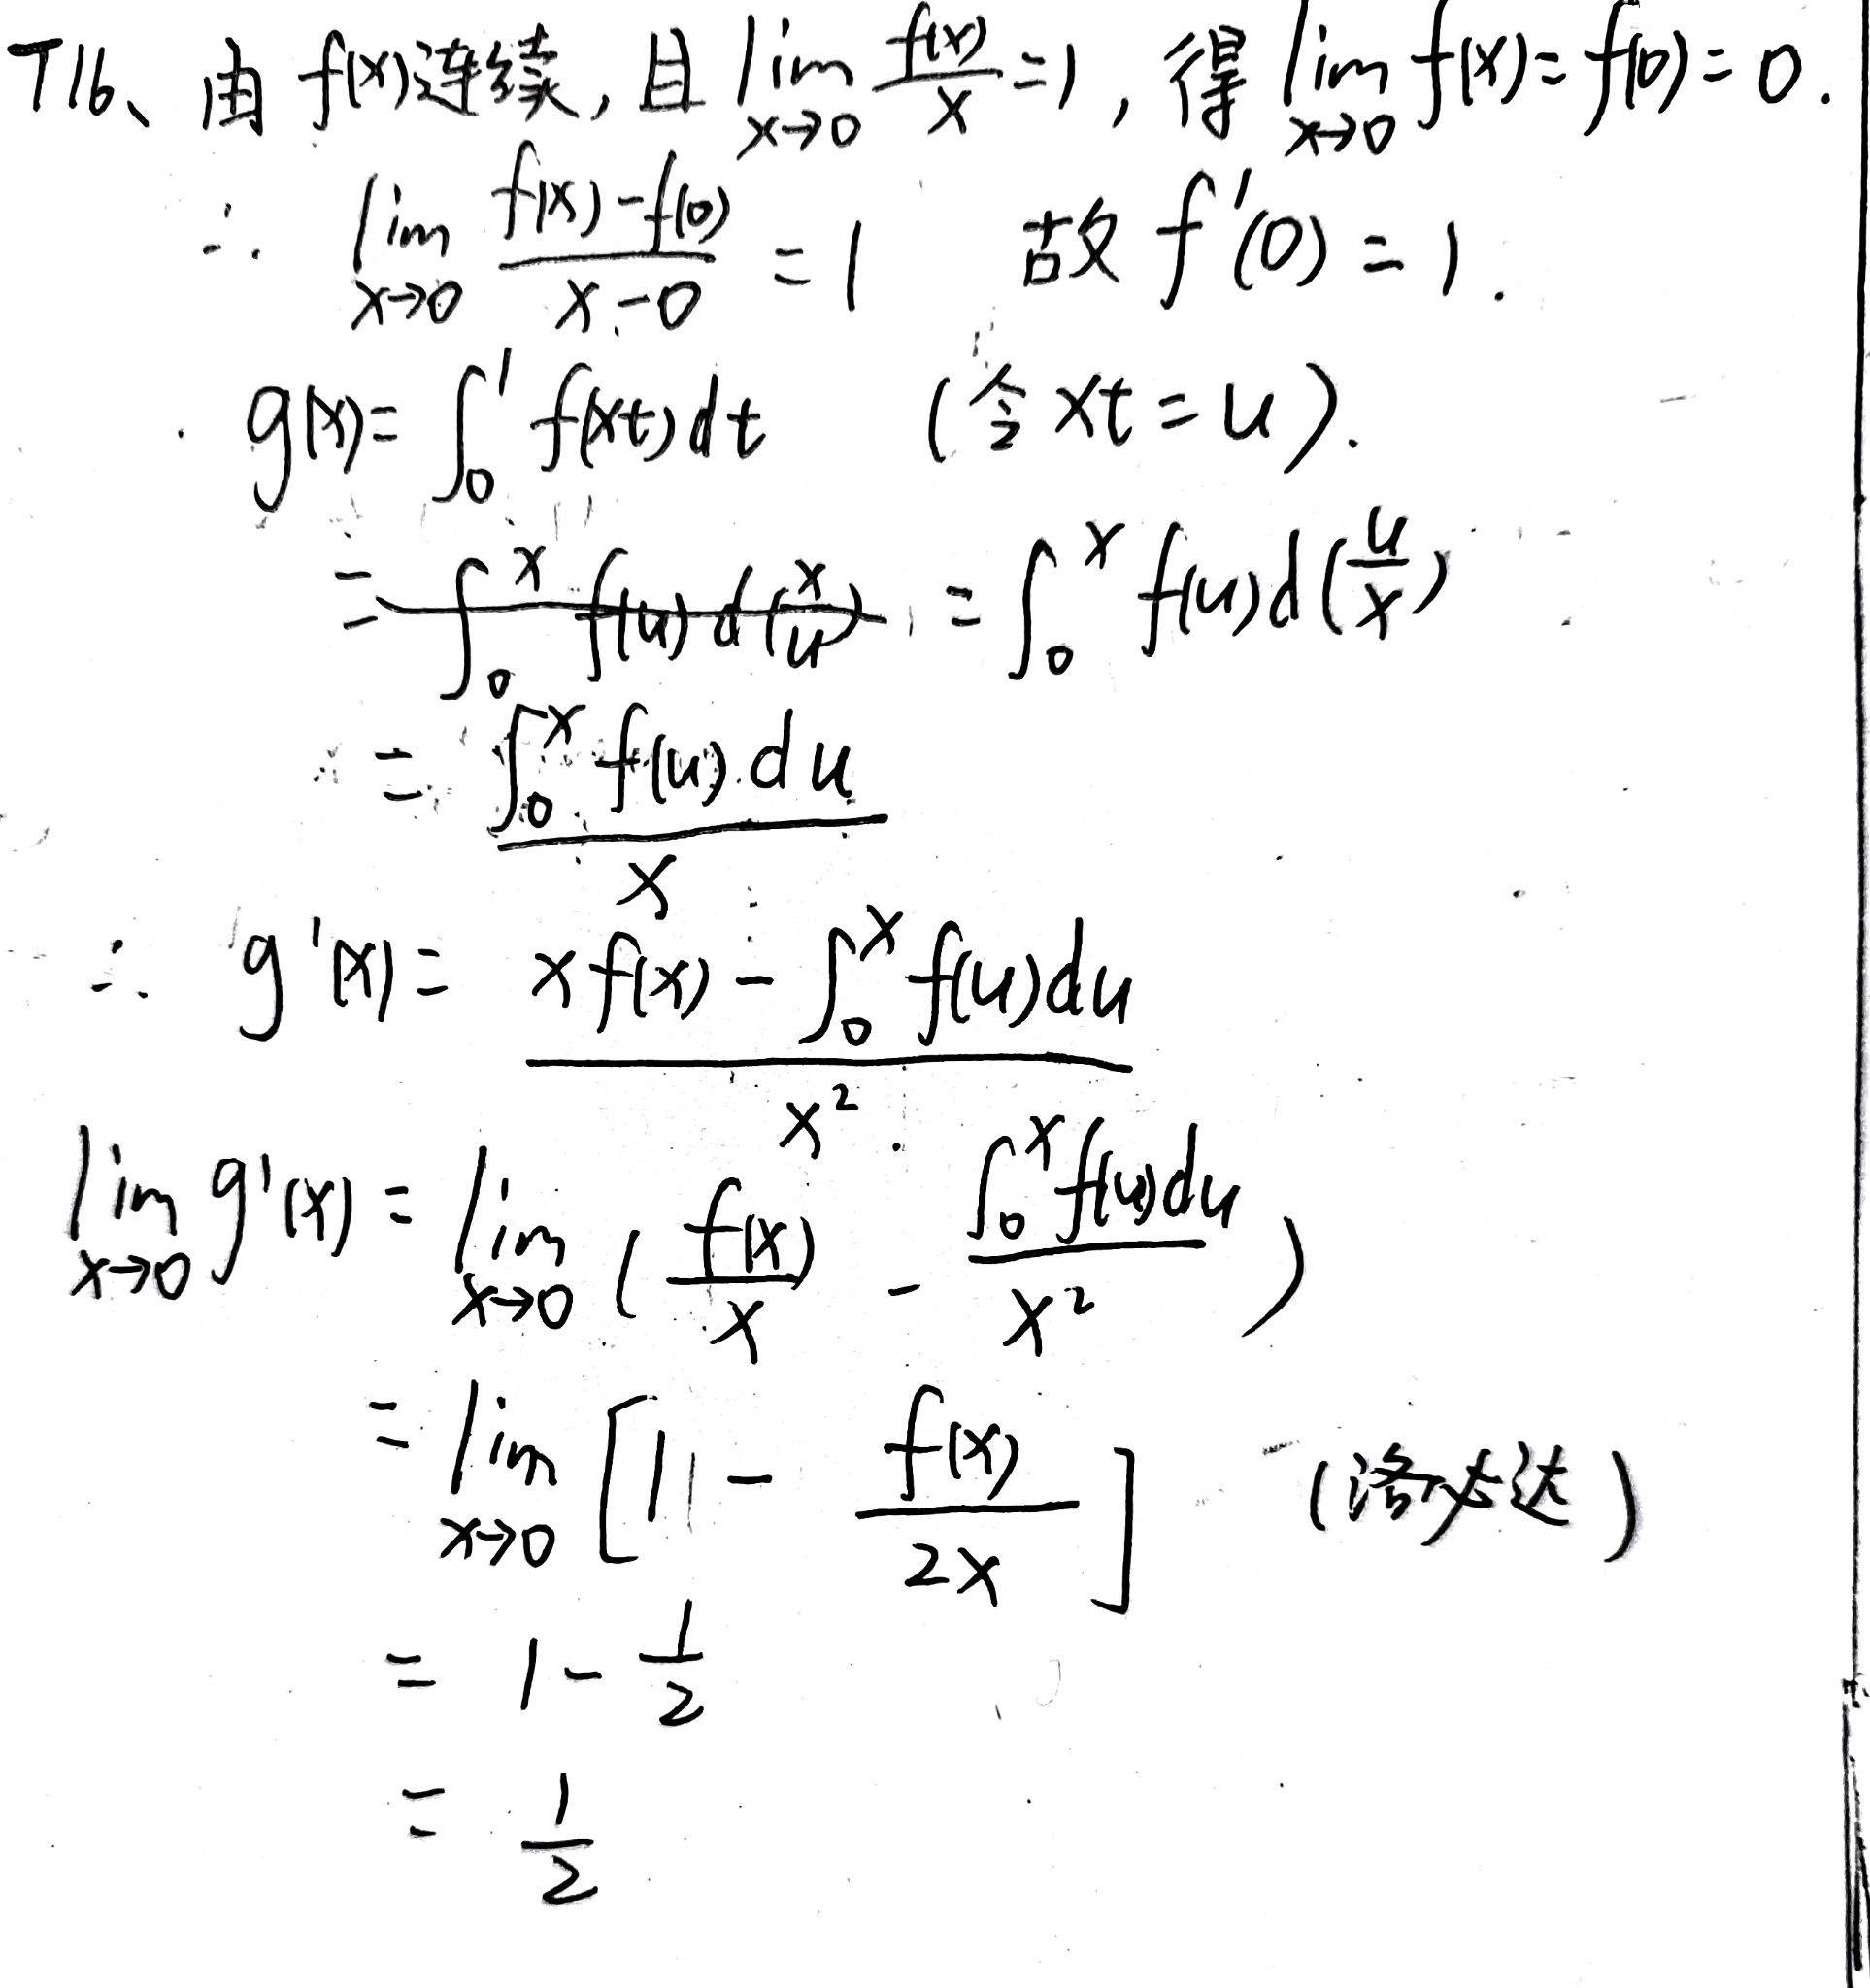 T16、由 f(x)连续,且 lim x→0 f(x)/x =1,得 lim x→0 f(x)=f(0)=0.
∴ lim x→0 (f(x)-f(0))/(x-0) =1 故 f'(0)=1.
g(x)= ∫₀¹ f(xt)dt (令 xt=u).
= ∫₀ˣ f(u)d(x/u) = ∫₀ˣ f(u)d(u/x)
= ∫₀ˣ f(u)du / x
∴ g'(x)= (xf(x) - ∫₀ˣ f(u)du) / x²
lim x→0 g'(x) = lim x→0 ( f(x)/x - ∫₀ˣ f(u)du / x² )
= lim x→0 [ 1 - f(x)/2x ] (洛必达)
= 1 - 1/2
= 1/2